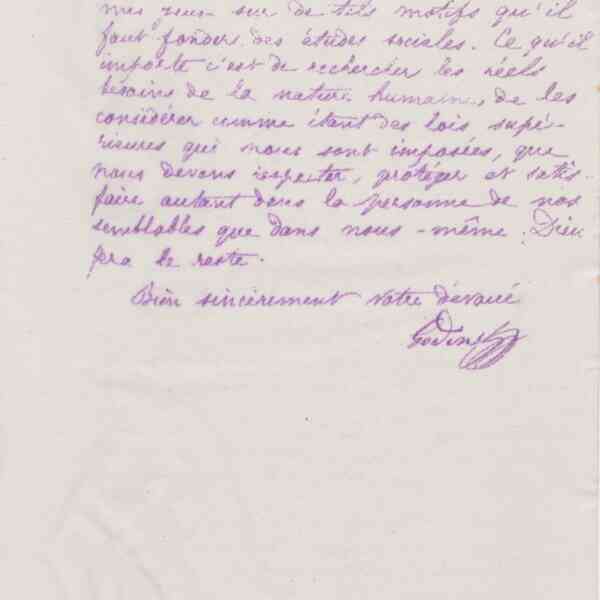 mes yeux sur de tels motifs qu'il
faut fonder des études sociales. Ce qu'il
importe c'est de rechercher les réels
besoins de la nature humaine, de les
considérer comme étant des lois supé-
rieures qui nous sont imposées, que
nous devons respecter, protéger et satis-
faire autant dans la personne de nos
semblables que dans nous-même. Dieu
fera le reste.
Bien sincèrement votre dévoué
Godin